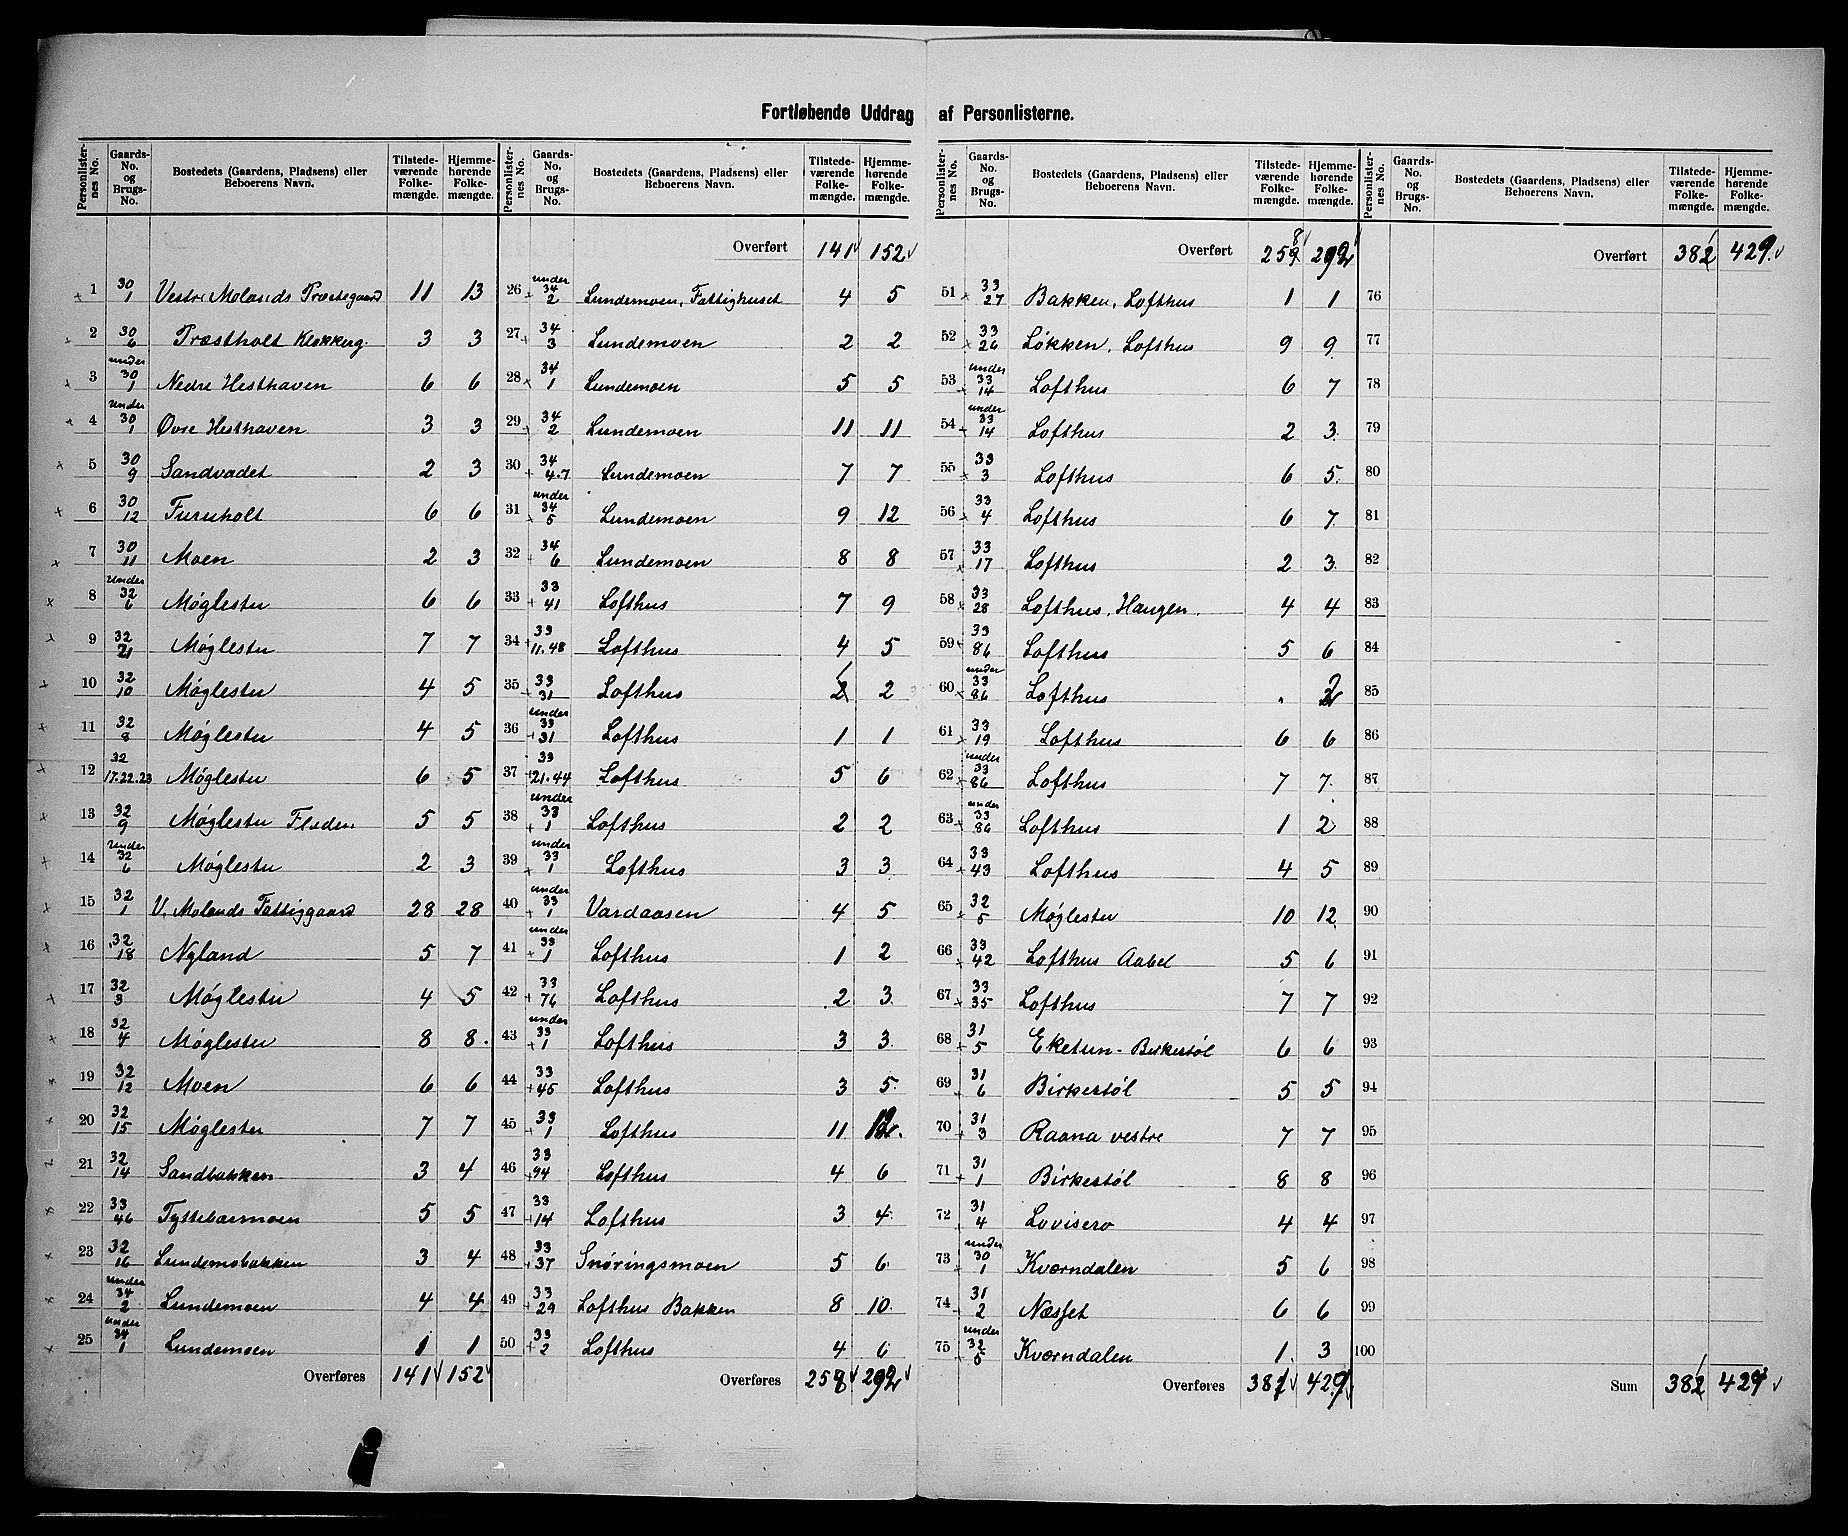 Fortløbende Uddrag af Personlisterne.
Personlister-nes No. | Gaards-No. og Brugs-No. | Bostedets (Gaardens, Pladsens) eller Beboerens Navn. | Tilstede-værende Folke-mængde. | Hjemme-hørende Folke-mængde.
1 30/1 Vestre Molands Præstegaard 11 13
2 30/6 Præstholt Klokkerg. 3 3
3 under 30/1 Nedre Hesthaven 6 6
4 under 30/1 Øvre Hesthaven 3 3
5 30/9 Sandvadet 2 3
6 30/12 Furuholt 6 6
7 30/11 Moen 2 3
8 under 32/6 Møglestu 6 6
9 32/21 Møglestu 7 7
10 32/10 Møglestu 4 5
11 32/8 Møglestu 4 5
12 32/17.22.23 Møglestu 6 5
13 32/9 Møglestu Fladen 5 5
14 under 32/6 Møglestu 2 3
15 32/1 V. Molands Fattiggaard 28 28
16 32/18 Nyland 5 7
17 32/3 Møglestu 4 5
18 32/4 Møglestu 8 8
19 32/12 Moen 6 6
20 32/15 Møglestu 7 7
21 32/14 Sandbakken 3 4
22 33/46 Tyttebærmoen 5 5
23 32/16 Lundemobakken 3 4
24 under 34/2 Lundemoen 4 4
25 under 34/1 Lundemoen 1 1
Overføres 141 152
Personlister-nes No. | Gaards-No. og Brugs-No. | Bostedets (Gaardens, Pladsens) eller Beboerens Navn. | Tilstede-værende Folke-mængde. | Hjemme-hørende Folke-mængde.
Overført 141 152
26 under 34/2 Lundemoen, Fattighuset 4 5
27 34/3 Lundemoen 2 2
28 34/1 Lundemoen 5 5
29 34/2 Lundemoen 11 11
30 34/4.7 Lundemoen 7 7
31 under 34/5 Lundemoen 9 12
32 34/6 Lundemoen 8 8
33 33/41 Lofthus 7 9
34 33/11.48 Lofthus 4 5
35 33/31 Lofthus 1 2
36 under 33/31 Lofthus 1 1
37 33/21.44 Lofthus 5 6
38 under 33/1 Lofthus 2 2
39 under 33/1 Lofthus 3 3
40 under 33/1 Vardaasen 4 5
41 under 33/1 Lofthus 1 2
42 33/76 Lofthus 2 3
43 under 33/1 Lofthus 3 3
44 33/45 Lofthus 3 5
45 33/1 Lofthus 11 12
46 33/94 Lofthus 4 6
47 33/14 Lofthus 3 4
48 33/37 Snøringsmoen 5 6
49 33/29 Lofthus Bakken 8 10
50 33/2 Lofthus 4 6
Overføres 258 292
Personlister-nes No. | Gaards-No. og Brugs-No. | Bostedets (Gaardens, Pladsens) eller Beboerens Navn. | Tilstede-værende Folke-mængde. | Hjemme-hørende Folke-mængde.
Overført 258 292
51 33/27 Bakken, Lofthus 1 1
52 33/26 Løkken, Lofthus 9 9
53 under 33/14 Lofthus 6 7
54 under 33/14 Lofthus 2 3
55 33/3 Lofthus 6 5
56 33/4 Lofthus 6 7
57 33/17 Lofthus 2 3
58 33/28 Lofthus, Haugen. 4 4
59 33/86 Lofthus 5 6
60 under 33/86 Lofthus . 2
61 33/19 Lofthus 6 6
62 under 33/86 Lofthus 7 7
63 under 33/86 Lofthus 1 2
64 33/43 Lofthus 4 5
65 32/5 Møglestu 10 12
66 33/42 Lofthus Aabel 5 6
67 33/35 Lofthus 7 7
68 31/5 Eketun - Birkestøl 6 6
69 31/6 Birkestøl 5 5
70 31/3 Raana vestre 7 7
71 31/1 Birkestøl 8 8
72 31/4 Lovisero 4 4
73 under 30/1 Kværndalen 5 6
74 31/2 Næsset 6 6
75 under 32/5 Kværndalen 1 3
Overføres 381 429
Personlister-nes No. | Gaards-No. og Brugs-No. | Bostedets (Gaardens, Pladsens) eller Beboerens Navn. | Tilstede-værende Folke-mængde. | Hjemme-hørende Folke-mængde.
Overført 381 429
76
77
78
79
80
81
82
83
84
85
86
87
88
89
90
91
92
93
94
95
96
97
98
99
100
Sum 381 429